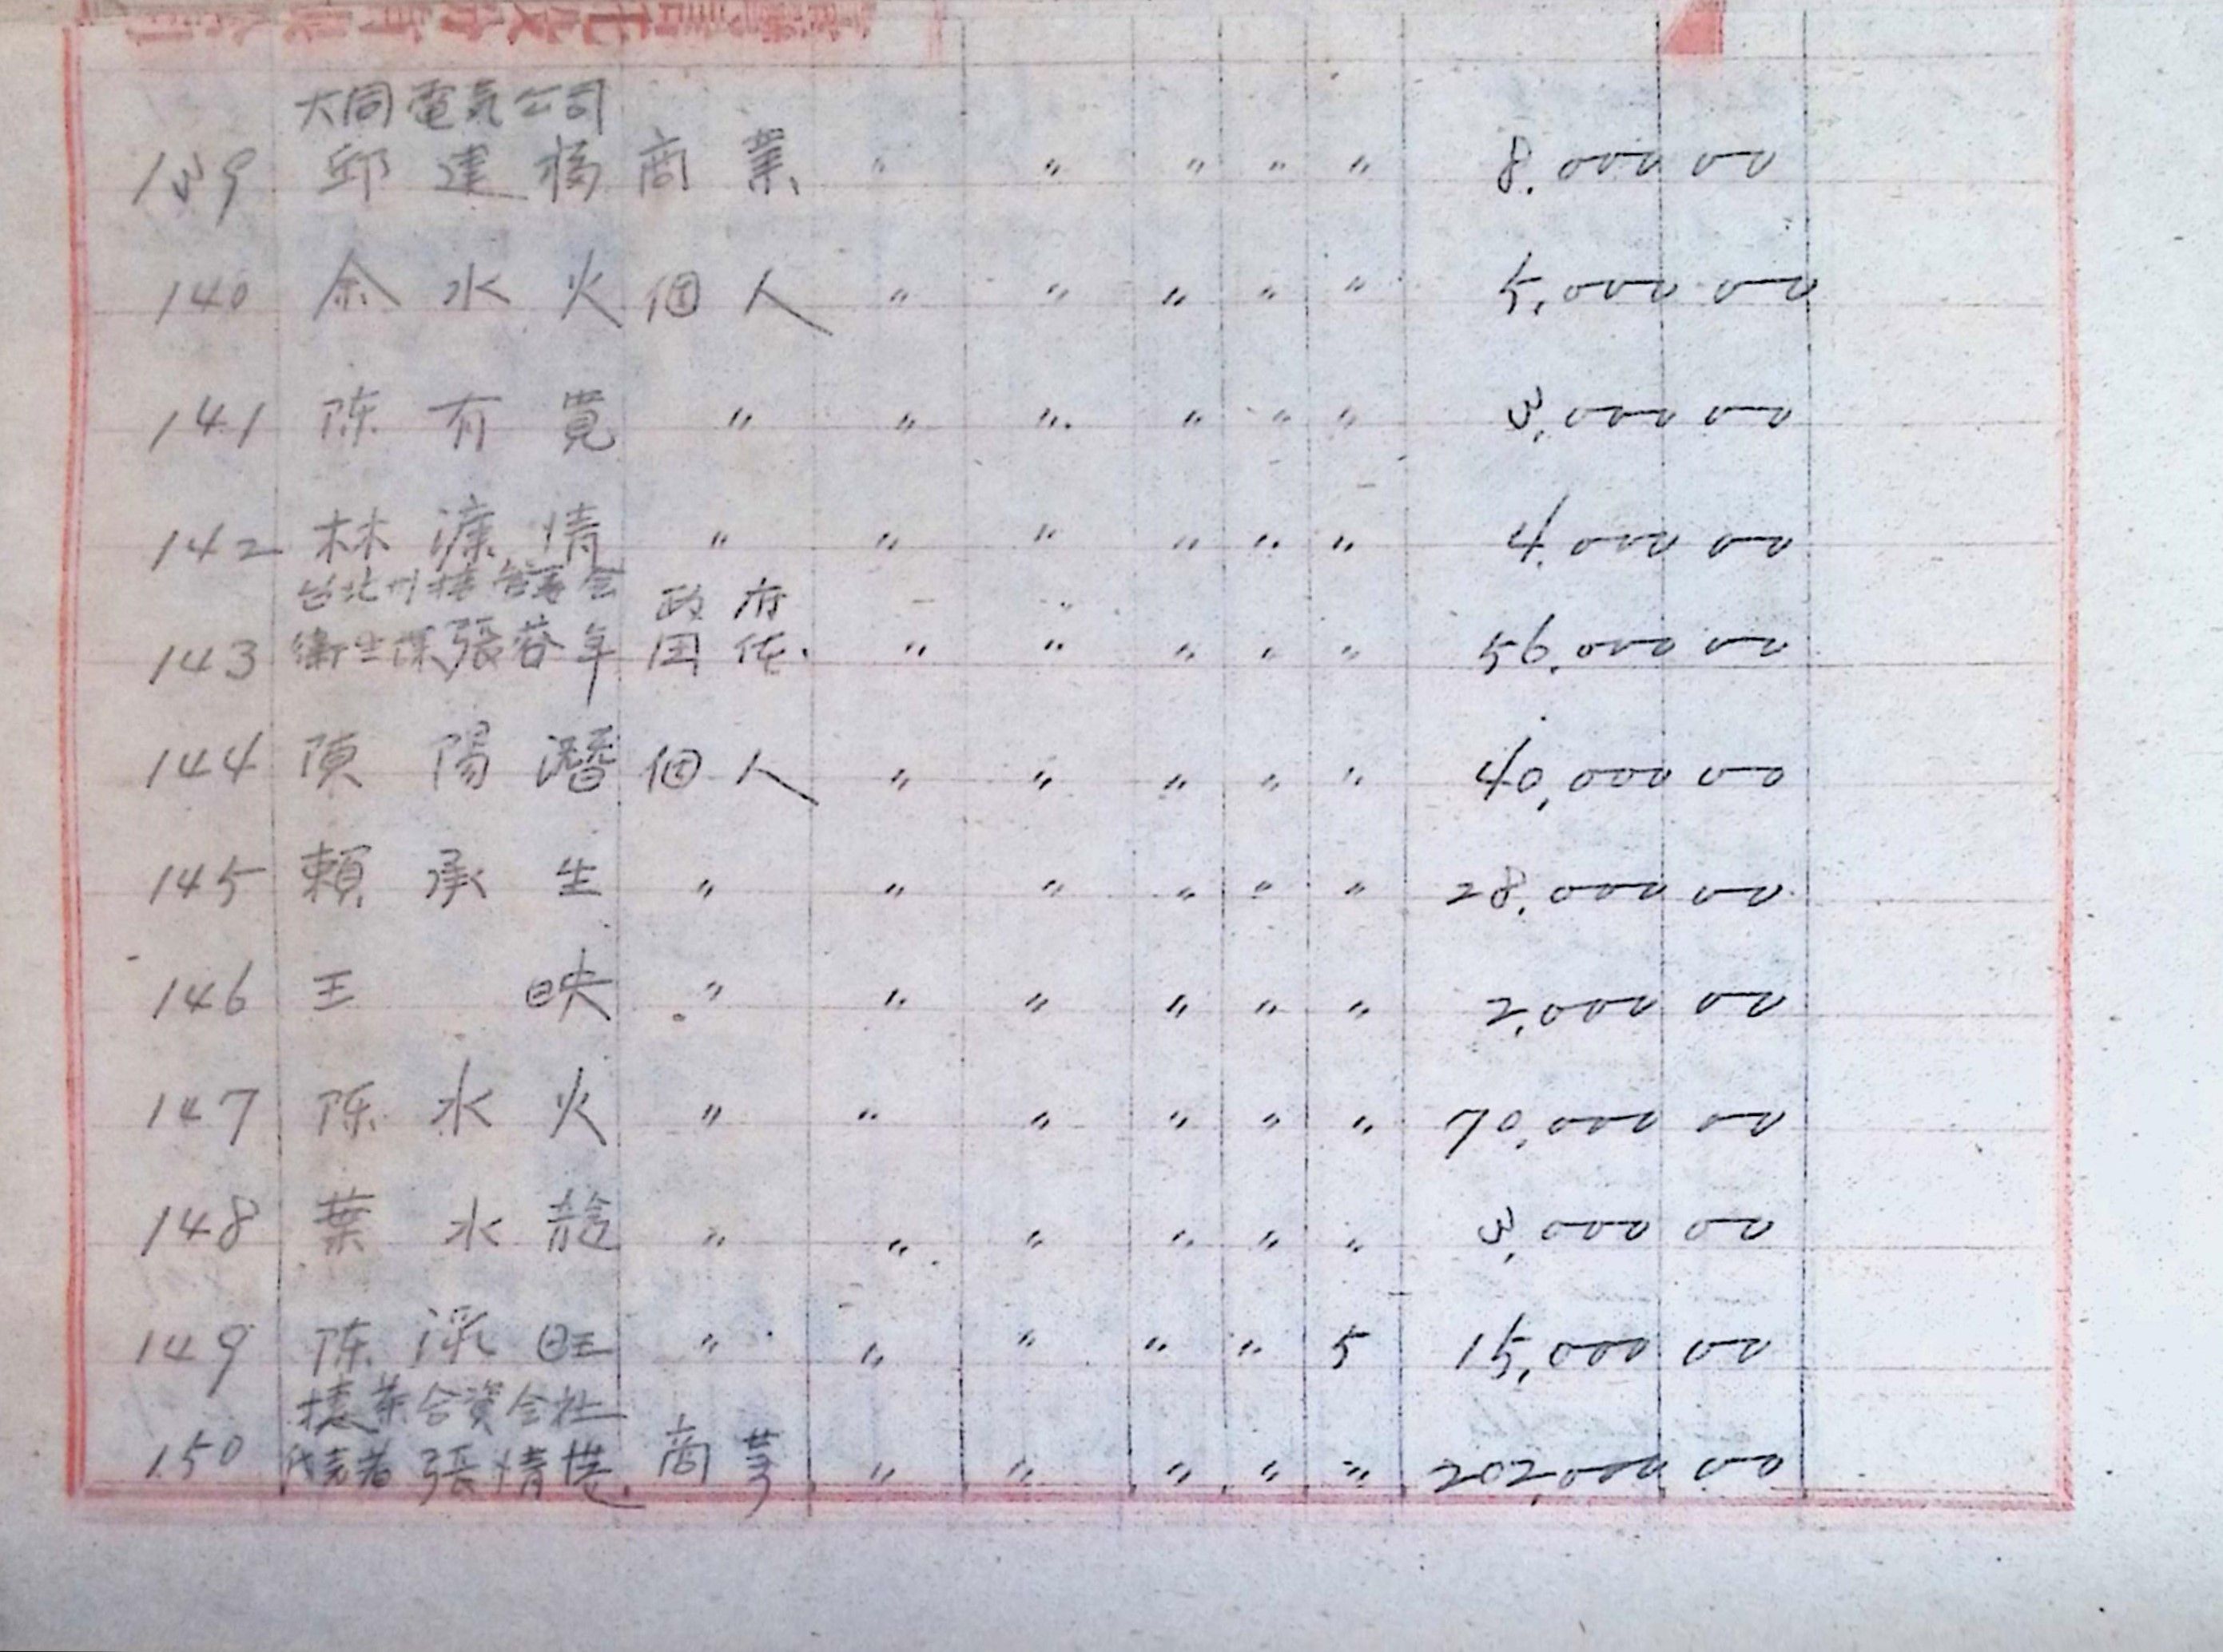 大同電気公司
139 邱建 商業 " " " " " 8.000 00
140 余水火 個人 " " " " " 5,000 00
141 陈有寛 " " " " " " 3,000 00
142 林 情 " " " " " " 4.000 00
台北州接管委会 政府
143 衛生課 張 年 团体 " " " " " 56.000 00
144 陽潛 個人 " " " " " 40,000 00
145 賴承生 " " " " " " 28.000 00
146 王映 " " " " " " 2,000 00
147 陈水火 " " " " " " 70,000 00
148 葉水龍 " " " " " " 3,000 00
149 陈 旺 " " " " " 5 15,000 00
合資会社
150 代表者 張情 商業 " " " " " 202,000 00